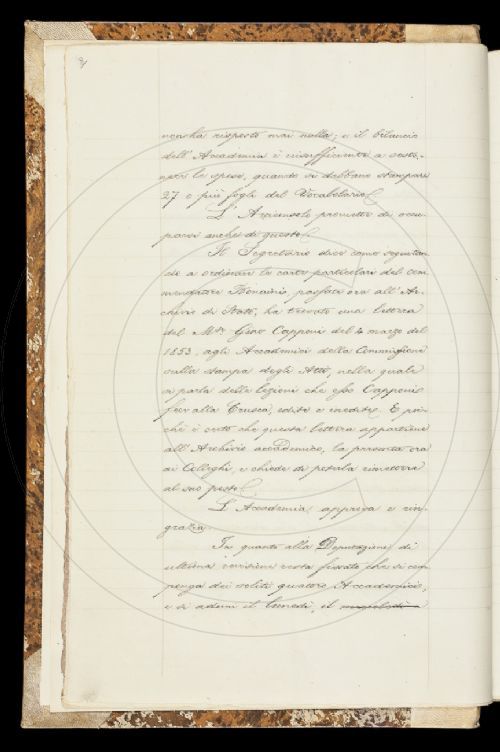 non ha risposto mai nulla; e il bilancio
dell'Accademia è insufficiente a soste-
nere le spese, quando si debbano stampare
27 o più fogli del Vocabolario.
L'Arciconsolo promette di occu-
parsi anche di questo.
Il Segretario dice come seguitan-
do a ordinare le carte particolari del com-
mendatore Bonaini, passate ora all'Ar-
chivio di Stato, ha trovato una lettera
del M.se Gino Capponi del 4 marzo del
1853, agli Accademici della Commissione
sulla stampa degli Atti, nella quale
si parla delle lezioni che esso Capponi
fece alla Crusca, edite e inedite. E poi-
chè è certo che questa lettera appartiene
all'Archivio accademico, la presenta ora
ai Colleghi, e chiede di poterla rimettere
al suo posto.
L'Accademia approva e rin-
grazia.
In quanto alla Deputazione di
ultima revisione resta fissato che si com-
ponga dei soliti quattro Accademici,
e si aduni il lunedì, il